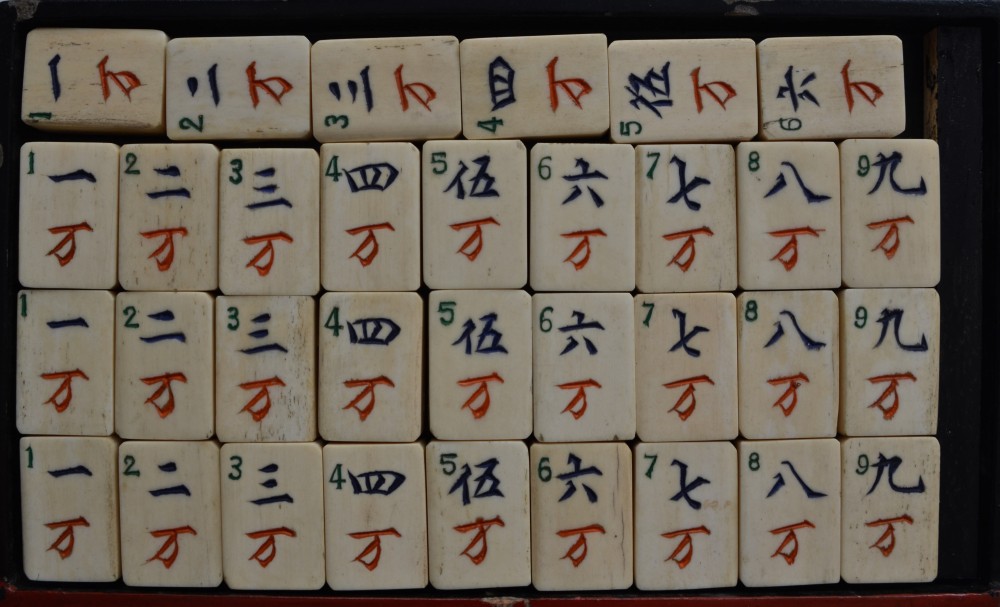 1 一万 2 二万 3 三万 4 四万 5 伍万 6 六万
1 一万 2 二万 3 三万 4 四万 5 伍万 6 六万 7 七万 8 八万 9 九万
1 一万 2 二万 3 三万 4 四万 5 伍万 6 六万 7 七万 8 八万 9 九万
1 一万 2 二万 3 三万 4 四万 5 伍万 6 六万 7 七万 8 八万 9 九万